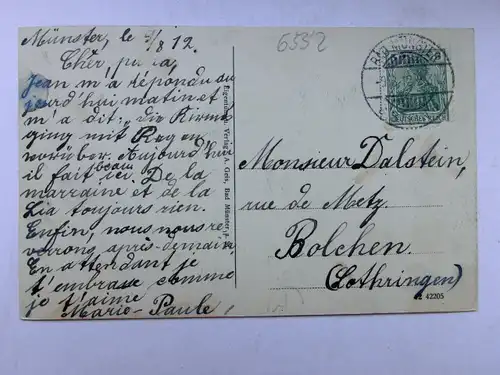 Münster, le 5/8 12.
6552
Cher papa,
Jean m'a répondu au
jourd'hui matin et
m'a dit: die Kirmes
ging mit Regen
vorüber. Aujourd'hui
il fait beau ici. De la
marraine et de la
Lia toujours rien.
Enfin, nous nous re
verrons après-demain.
En attendant je
t'embrasse comme
je t'aime
Marie-Paule
Eigentum u. Verlag v. A. Geis, Bad Münster a.
BAD MÜNSTER
DEUTSCHES REICH
Monsieur Dalstein,
rue de Metz
Bolchen.
(Lothringen)
42205